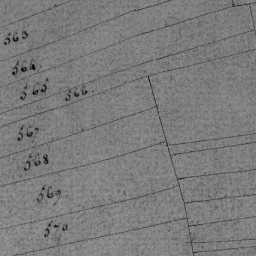 563
564
565
566.
567
568
569
570